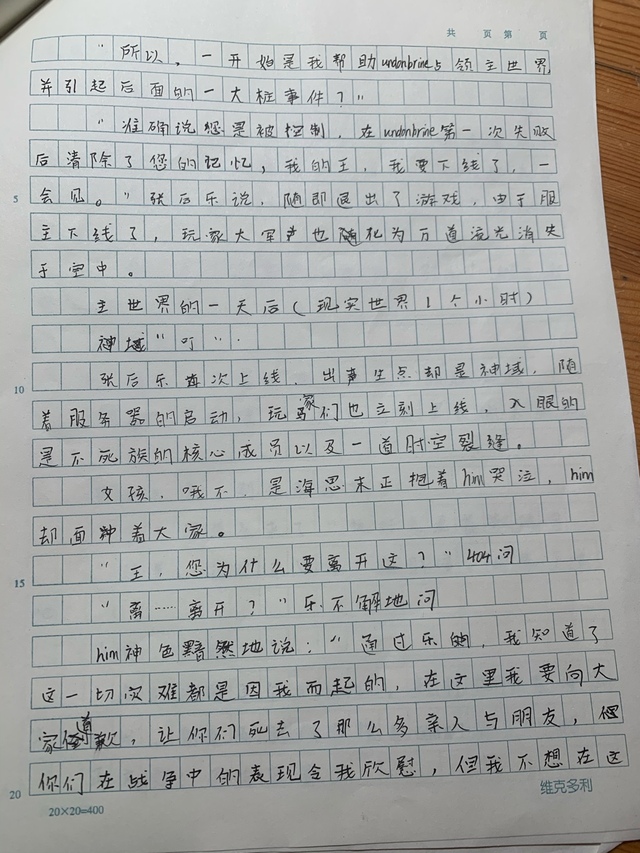 共 页 第 页
"所以，一开始是我帮助undonbrine占领主世界
并引起后面的一大桩事件？"
"准确说您是被控制，在undonbrine第一次失败
后清除了您的记忆，我的王，我要下线了，一
5 会见。"张后乐说，随即退出了游戏，由于服
主下线了，玩家大军也随化为万道流光消失
于空中。
主世界的一天后（现实世界1个小时）
神域"叮"
10 张后乐再次上线，出生点却是神域，随
着服务器的启动，玩家们也立刻上线，入眼的
是不死族的核心成员以及一道时空裂缝。
女孩，哦不，是海思末正抱着him哭泣，him
却面种着大家。
15 "王，您为什么要离开这？"404问
"离……离开？"乐不解地问
him神色黯然地说："通过乐的，我知道了
这一切灾难都是因我而起的，在这里我要向大
家道歉，让你们死去了那么多亲人与朋友，但
20 你们在战争中的表现令我欣慰，但我不想在这
20×20=400
维克多利